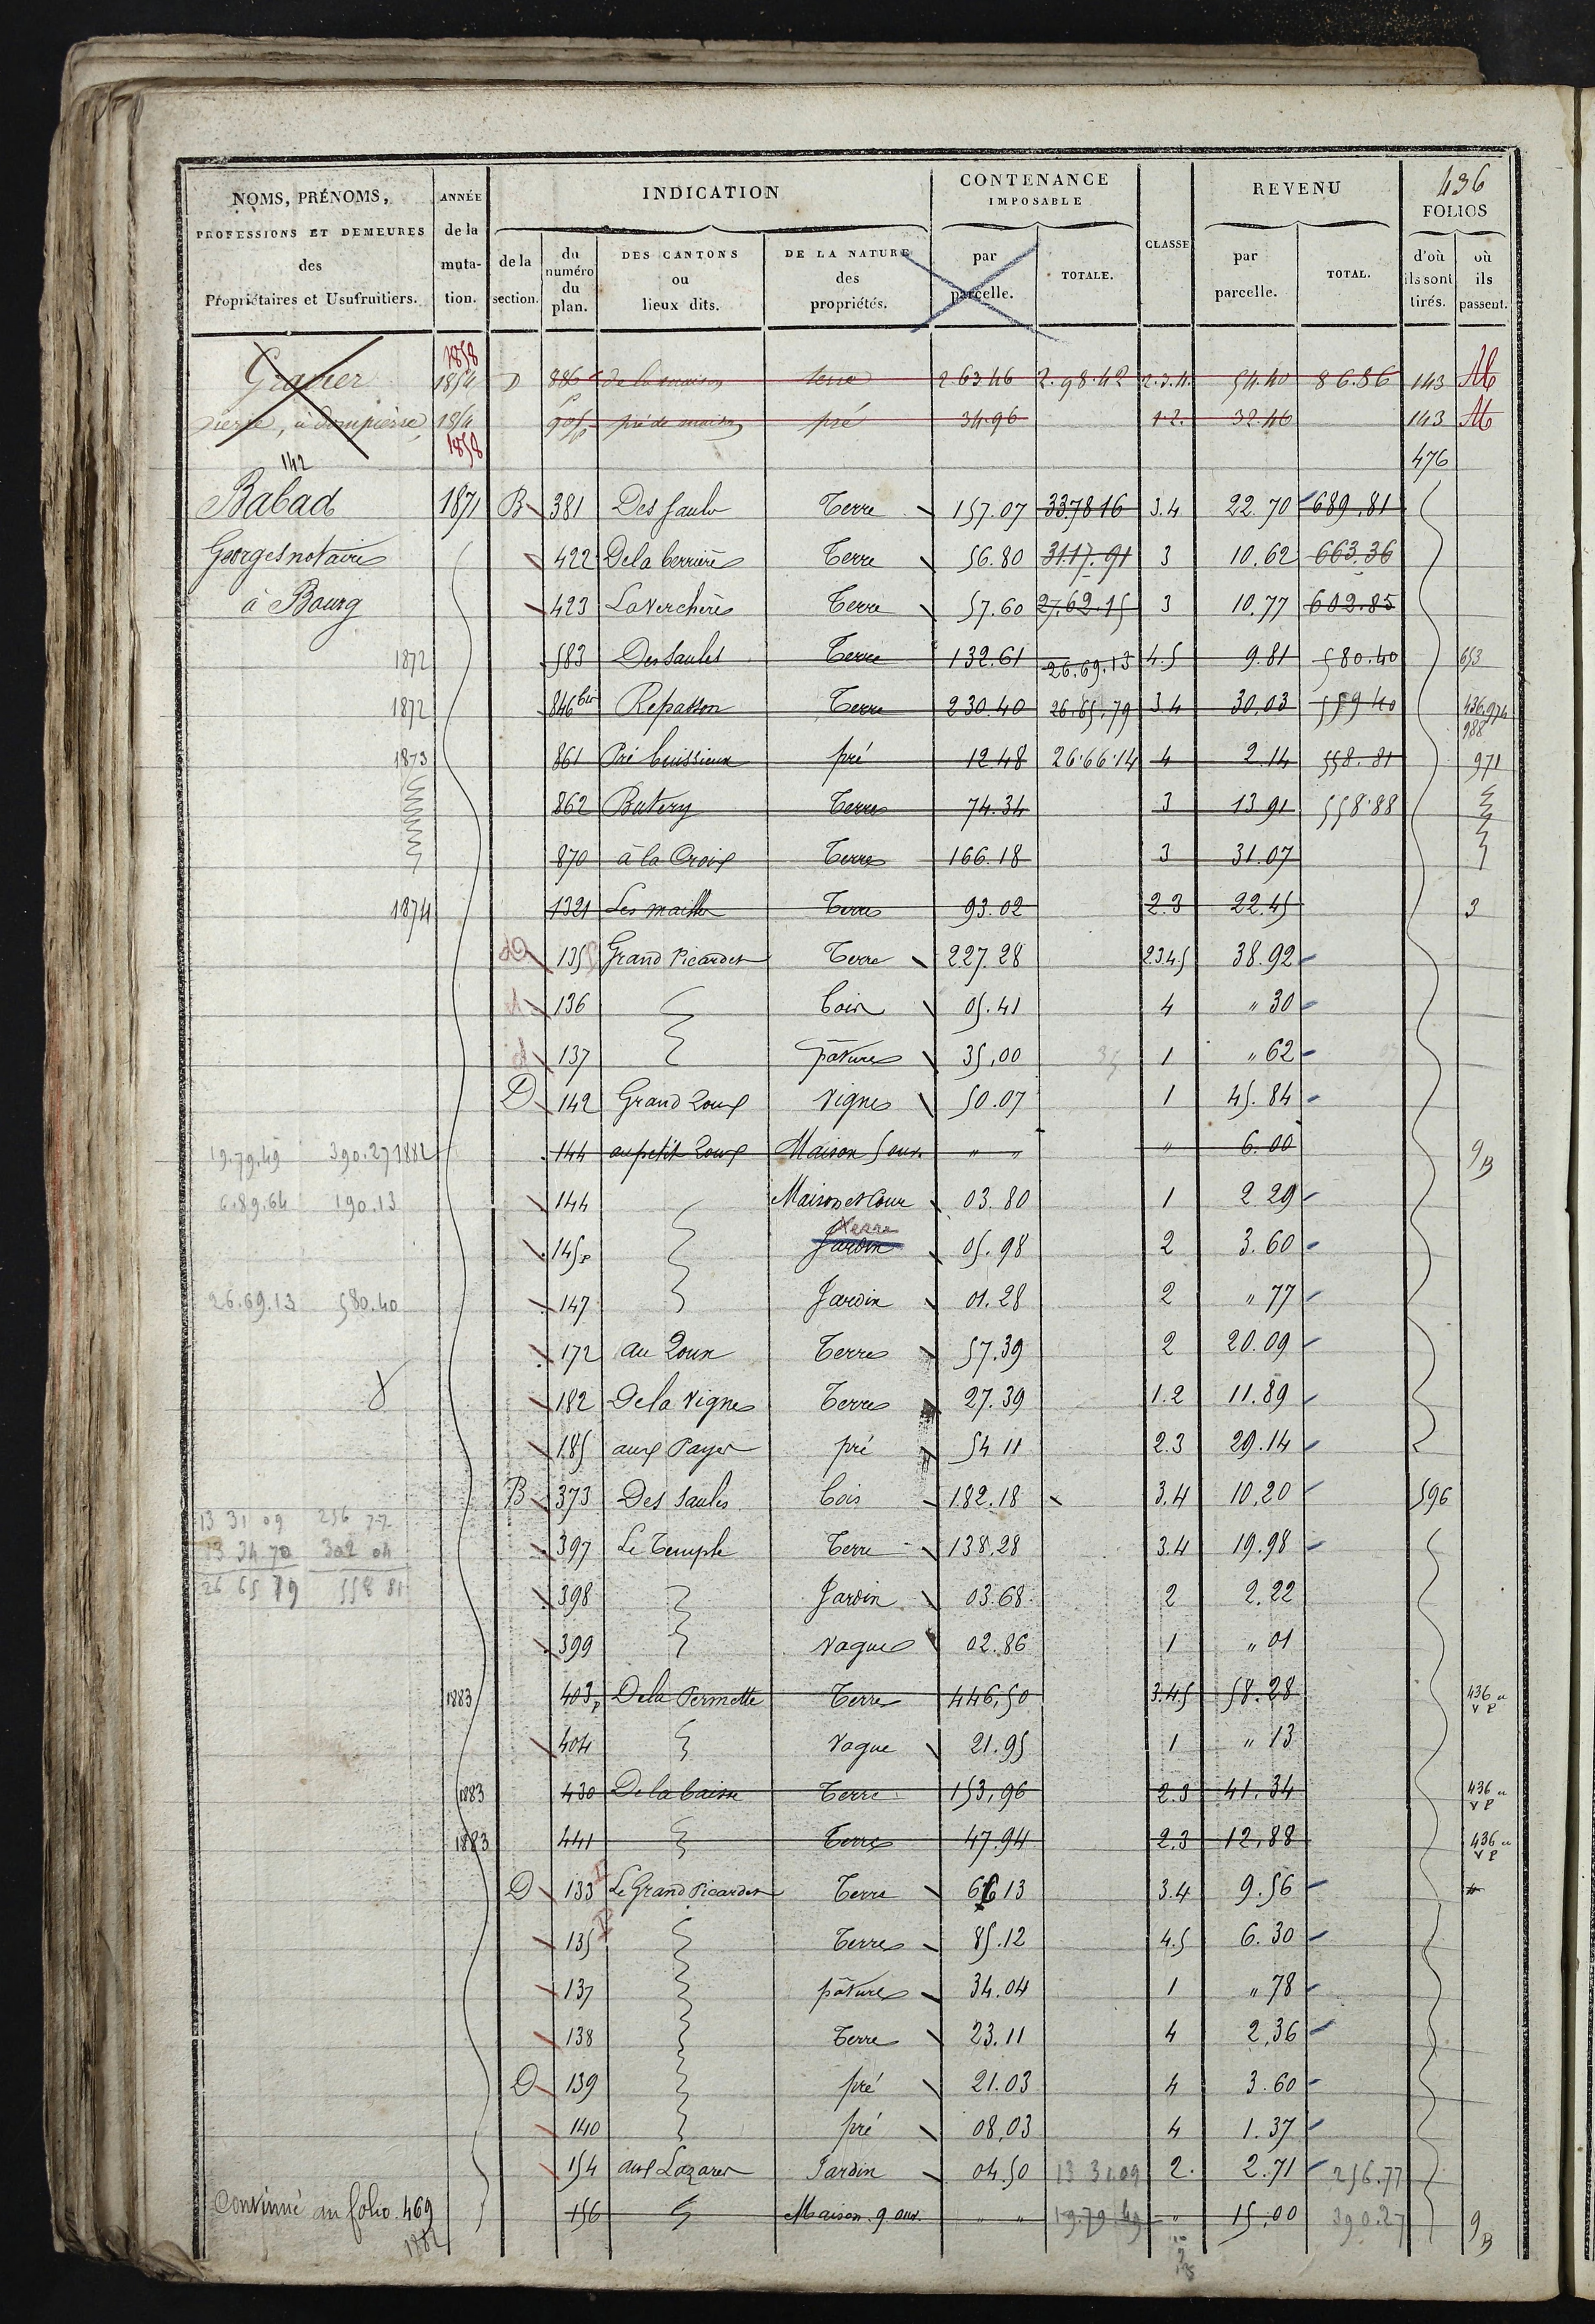 NOMS, PRÉNOMS, PROFESSIONS ET DEMEURES des Propriétaires et Usufruitiers.
ANNÉE de la muta- tion.
INDICATION
de la section.
du numéro du plan.
DES CANTONS ou lieux dits.
DE LA NATURE des propriétés.
CONTENANCE IMPOSABLE
par parcelle.
TOTALE.
CLASSE
REVENU
par parcelle.
TOTAL.
436
FOLIOS
d'où ils sont tirés.
où ils passent.
1858
Gravier 1854 D 886 de la maison terre 2 63.46 2.98.42 2.3.4. 54.40 86.86 143
pierre, à dompierre 1854 905p pré de maison pré 34.96 1.2. 32.46 143
1858
142 476
Babad 1871 B 381 Des Saules Terre 157.07 33.78.16 3.4 22.70 689.81
Georges notaire 422 De la berrière Terre 56.80 31.17.91 3 10.62 663.36
à Bourg 423 La Verchère Terre 57.60 27.62.15 3 10.77 602.85
1872 583 Des Saules Terre 132.61 26.69.13 4.5 9.81 580.40 653
1872 846 bis Repasson Terre 230.40 26.65.79 3.4 30.03 559.40 436.974 988
1873 861 Pré buissieux pré 12.48 26.66.14 4 2.14 558.81 971
862 Butery Terre 74.34 3 13.91 558.88
870 à la Croix Terre 166.18 3 31.07
1874 1321 Les maille Terre 93.02 2.3 22.45 3
135 Grand Picardet Terre 227.28 2.3.4.5 38.92
136 bois 05.41 4 " 30
137 pâture 35,00 1 " 62
D 142 Grand Roux Vigne 50.07 1 45.84
19.79.49 390.27 1882 144 au petit Roux Maison 5 ouv. " " " 6.00 9B
6.89.64 190.13 144 Maison et Cour 03.80 1 2 29
Terre
145p Jardin 05.98 2 3.60
26.69.13 580.40 147 Jardin 01.28 2 " 77
172 au Roux Terre 57.39 2 20.09
182 De la Vigne Terre 27.39 1.2 11.89
185 aux Payes pré 54 11 2.3 29.14
B 373 Des Saules bois 182.18 3.4 10.20 596
13 31 09 256 77
13 34 70 302 04 397 Le Temple Terre 138.28 3.4 19.98
26 65 79 558 81 398 Jardin 03.68 2 2.22
399 Vague 02.86 1 " 01
1883 403p De la Permette Terre 446,50 3.4.5 58.28 436
404 Vague 21.95 1 " 13
1883 430 De la baisse Terre 153,96 2.3 41.34 436
1883 441 Terre 47.94 2.3 12,88 436
D 133 Le Grand Picardet Terre 66 13 3.4 9.56
135 Terre 85.12 4.5 6.30
137 pâture 34.04 1 " 78
138 Terre 23.11 4 2,36
D 139 pré 21.03 4 3.60
140 pré 08,03 4 1.37
154 aux Lazares Jardin 04.50 13 31.09 2. 2.71 256.77
Continué au folio 469 156 Maison 9 ouv. " " 19.79.49 " 15,00 390.27 9B
1882